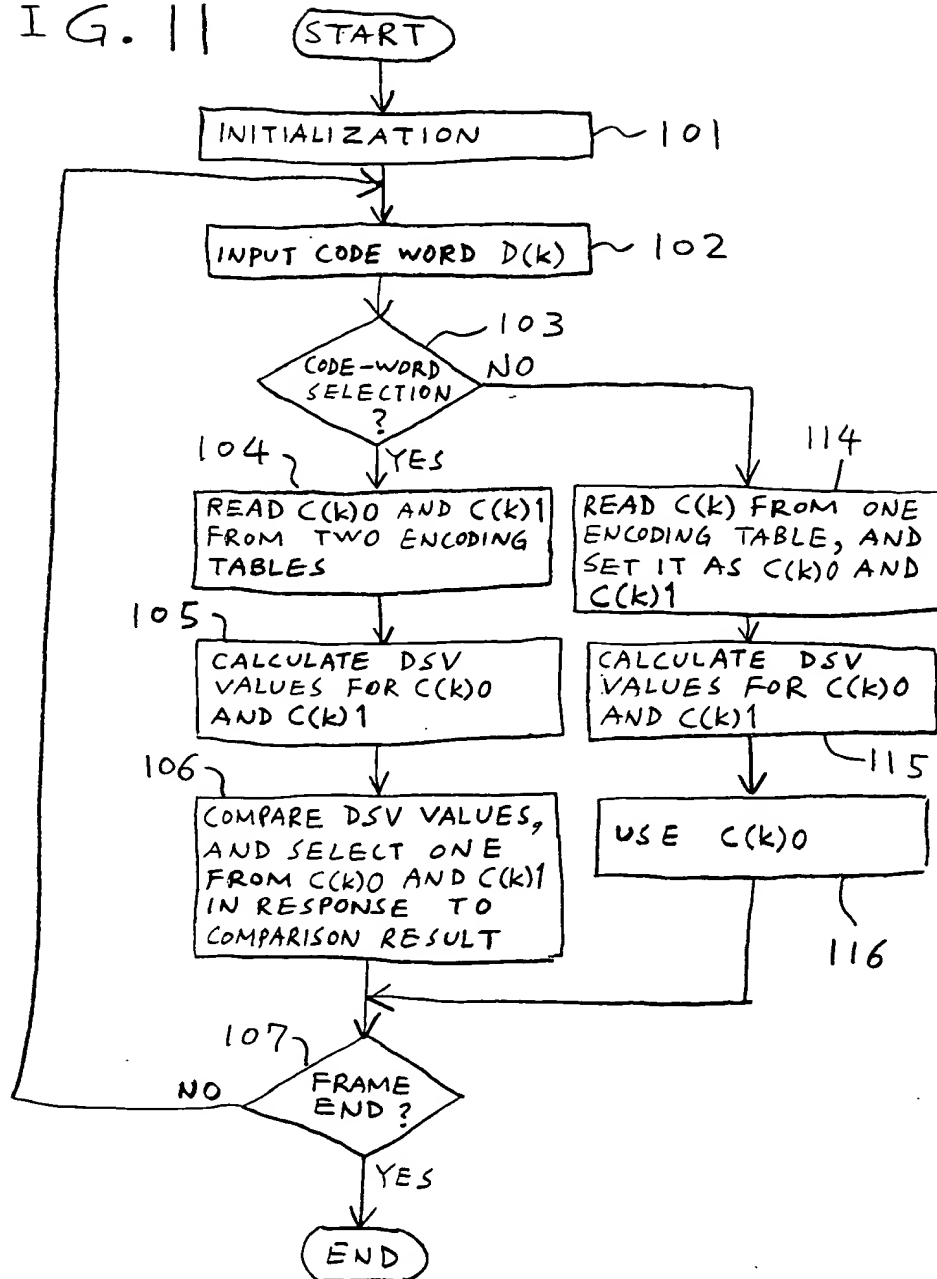 IG. 11
START
INITIALIZATION
101
INPUT CODE WORD D(k)
102
103
CODE-WORD
SELECTION
?
NO
YES
104
READ C(k)0 AND C(k)1
FROM TWO ENCODING
TABLES
114
READ C(k) FROM ONE
ENCODING TABLE, AND
SET IT AS C(k)0 AND
C(k)1
105
CALCULATE DSV
VALUES FOR C(k)0
AND C(k)1
CALCULATE DSV
VALUES FOR C(k)0
AND C(k)1
115
106
COMPARE DSV VALUES,
AND SELECT ONE
FROM C(k)0 AND C(k)1
IN RESPONSE TO
COMPARISON RESULT
USE C(k)0
116
107
FRAME
END ?
NO
YES
END